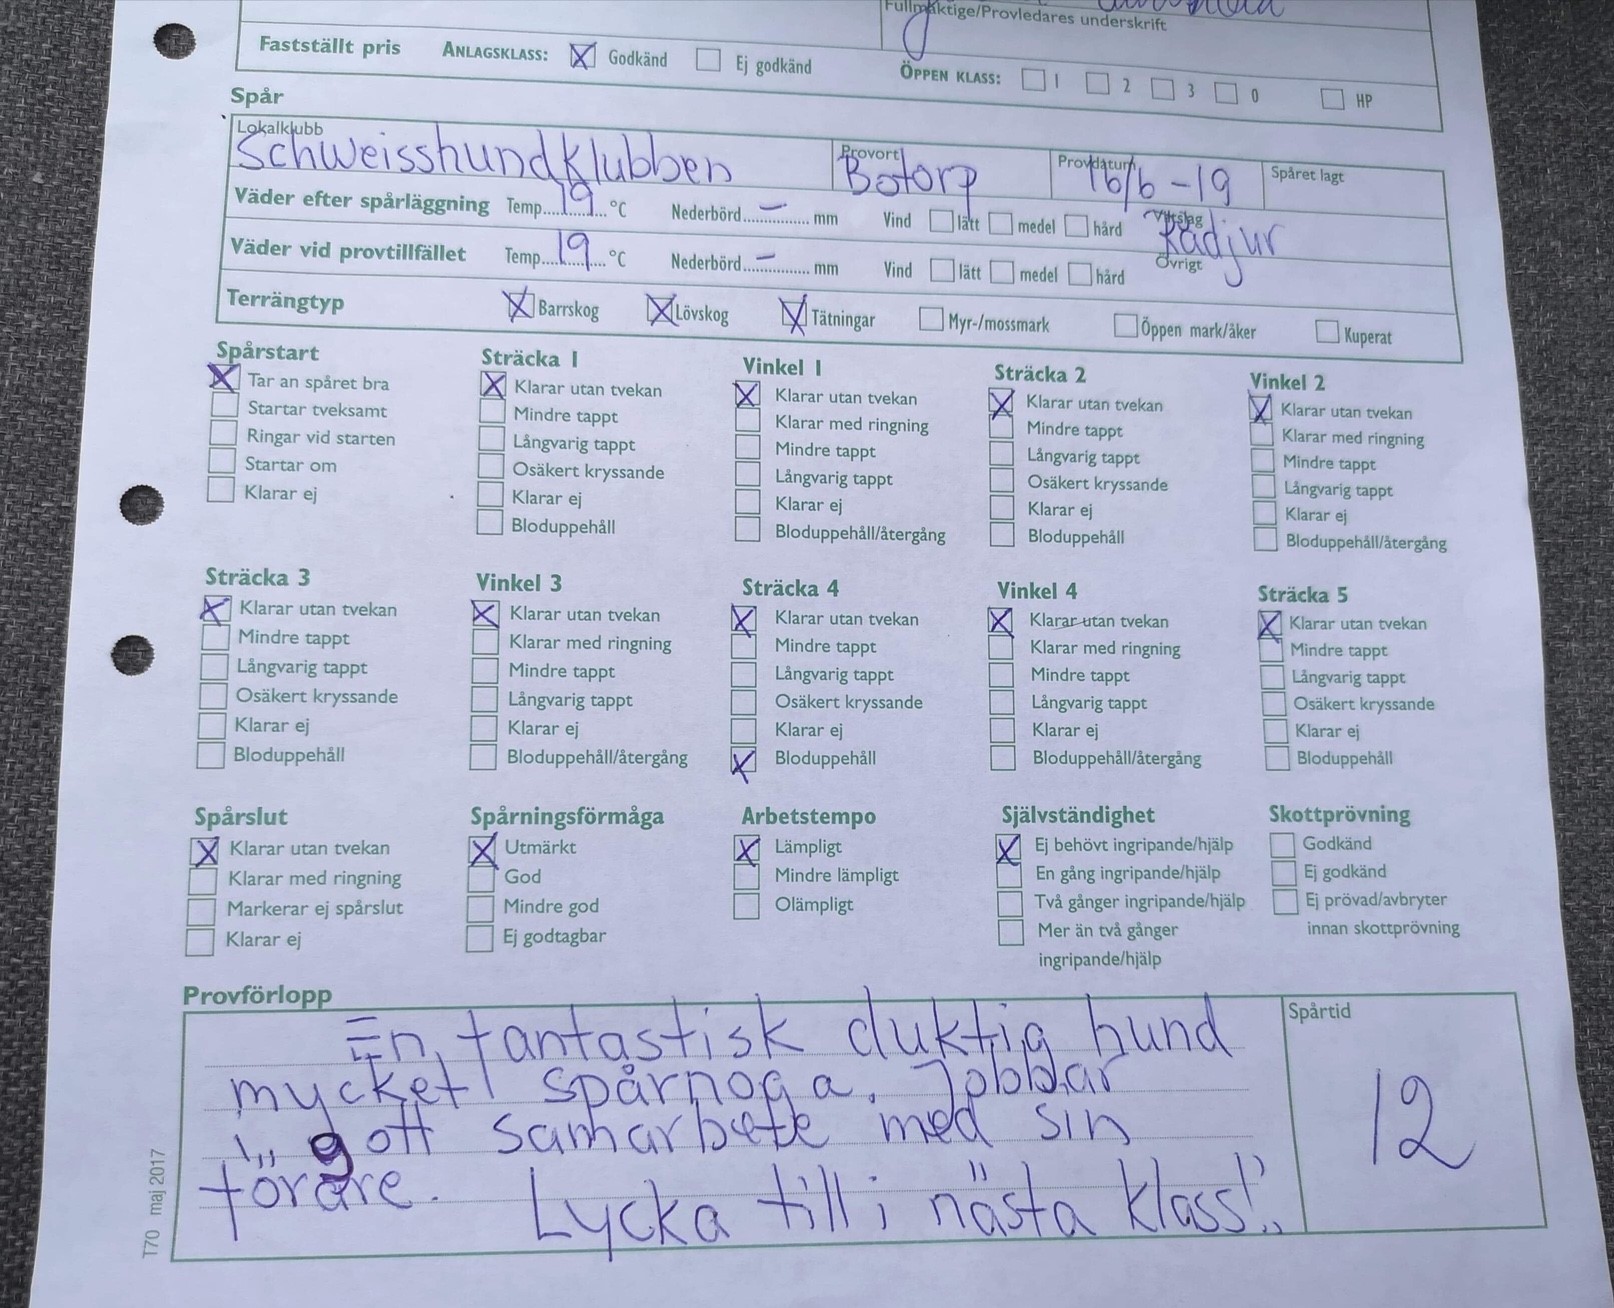 Fullmäktige/Provledares underskrift
Fastställt pris ANLAGSKLASS: Godkänd Ej godkänd ÖPPEN KLASS: 1 2 3 0 HP
Spår
Lokalklubb Provort Provdatum Spåret lagt
Schweisshundklubben Botorp 16/6-19
Väder efter spårläggning Temp.....19.....°C Nederbörd....–....mm Vind lätt medel hård Viltslag
Rådjur
Väder vid provtillfället Temp.....19.....°C Nederbörd....–....mm Vind lätt medel hård Övrigt
Terrängtyp Barrskog Lövskog Tätningar Myr-/mossmark Öppen mark/åker Kuperat
Spårstart
Tar an spåret bra
Startar tveksamt
Ringar vid starten
Startar om
Klarar ej
Sträcka 1
Klarar utan tvekan
Mindre tappt
Långvarig tappt
Osäkert kryssande
Klarar ej
Bloduppehåll
Vinkel 1
Klarar utan tvekan
Klarar med ringning
Mindre tappt
Långvarig tappt
Klarar ej
Bloduppehåll/återgång
Sträcka 2
Klarar utan tvekan
Mindre tappt
Långvarig tappt
Osäkert kryssande
Klarar ej
Bloduppehåll
Vinkel 2
Klarar utan tvekan
Klarar med ringning
Mindre tappt
Långvarig tappt
Klarar ej
Bloduppehåll/återgång
Sträcka 3
Klarar utan tvekan
Mindre tappt
Långvarig tappt
Osäkert kryssande
Klarar ej
Bloduppehåll
Vinkel 3
Klarar utan tvekan
Klarar med ringning
Mindre tappt
Långvarig tappt
Klarar ej
Bloduppehåll/återgång
Sträcka 4
Klarar utan tvekan
Mindre tappt
Långvarig tappt
Osäkert kryssande
Klarar ej
Bloduppehåll
Vinkel 4
Klarar utan tvekan
Klarar med ringning
Mindre tappt
Långvarig tappt
Klarar ej
Bloduppehåll/återgång
Sträcka 5
Klarar utan tvekan
Mindre tappt
Långvarig tappt
Osäkert kryssande
Klarar ej
Bloduppehåll
Spårslut
Klarar utan tvekan
Klarar med ringning
Markerar ej spårslut
Klarar ej
Spårningsförmåga
Utmärkt
God
Mindre god
Ej godtagbar
Arbetstempo
Lämpligt
Mindre lämpligt
Olämpligt
Självständighet
Ej behövt ingripande/hjälp
En gång ingripande/hjälp
Två gånger ingripande/hjälp
Mer än två gånger
ingripande/hjälp
Skottprövning
Godkänd
Ej godkänd
Ej prövad/avbryter
innan skottprövning
Provförlopp
En fantastisk duktig hund
mycket spårnoga. Jobbar
i gott samarbete med sin
förare. Lycka till i nästa klass!
Spårtid
12
T70 maj 2017